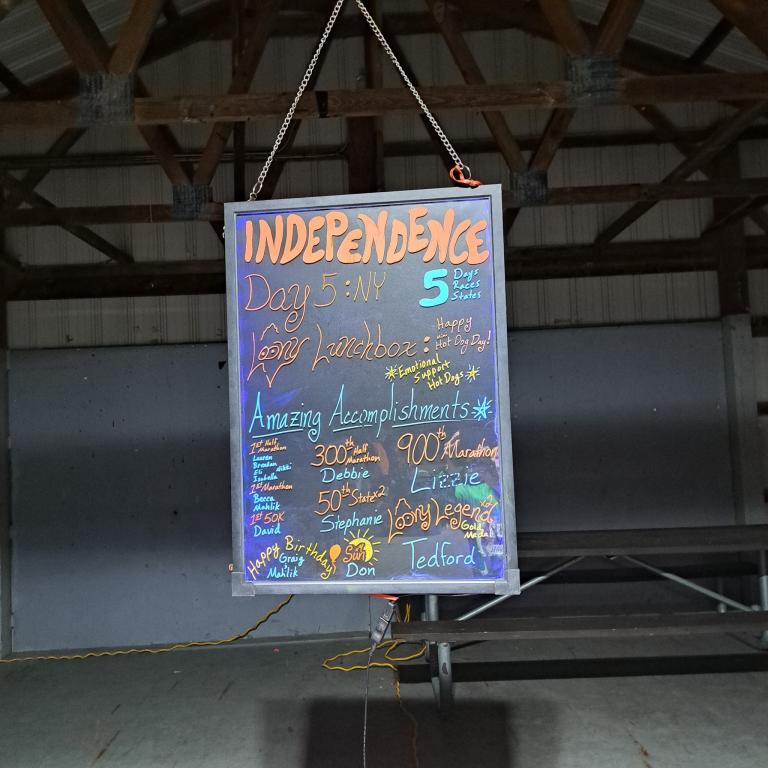 INDEPENDENCE
Day 5: NY
5 Days
Races
States
Loony Lunchbox: Happy
Hot Dog Day!
Emotional
Support
Hot Dogs
Amazing Accomplishments
1st Half
Marathon
Lauren
Brendan
Eli Nikki
Isabella
1st Marathon
Becca
Mahlik
1st 50K
David
300th Half
Marathon
Debbie
50th State x2
Stephanie
900th Marathon
Lizzie
Loony Legend
Gold
Medal
Tedford
Happy Birthday
Graig
Mahlik
Sun
Don